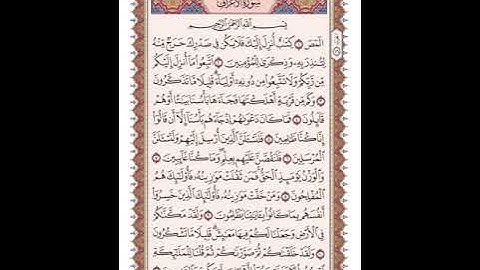 سُورَةُ الأَعْرَافِ
بِسْمِ اللَّهِ الرَّحْمَٰنِ الرَّحِيمِ
الٓمٓصٓ ۝ كِتَٰبٌ أُنزِلَ إِلَيْكَ فَلَا يَكُن فِى صَدْرِكَ حَرَجٌ مِّنْهُ
لِتُنذِرَ بِهِۦ وَذِكْرَىٰ لِلْمُؤْمِنِينَ ۝ ٱتَّبِعُوا۟ مَآ أُنزِلَ إِلَيْكُم
مِّن رَّبِّكُمْ وَلَا تَتَّبِعُوا۟ مِن دُونِهِۦٓ أَوْلِيَآءَ ۗ قَلِيلًا مَّا تَذَكَّرُونَ
۝ وَكَم مِّن قَرْيَةٍ أَهْلَكْنَٰهَا فَجَآءَهَا بَأْسُنَا بَيَٰتًا أَوْ هُمْ
قَآئِلُونَ ۝ فَمَا كَانَ دَعْوَىٰهُمْ إِذْ جَآءَهُم بَأْسُنَآ إِلَّآ أَن قَالُوٓا۟
إِنَّا كُنَّا ظَٰلِمِينَ ۝ فَلَنَسْـَٔلَنَّ ٱلَّذِينَ أُرْسِلَ إِلَيْهِمْ وَلَنَسْـَٔلَنَّ
ٱلْمُرْسَلِينَ ۝ فَلَنَقُصَّنَّ عَلَيْهِم بِعِلْمٍ ۖ وَمَا كُنَّا غَآئِبِينَ ۝
وَٱلْوَزْنُ يَوْمَئِذٍ ٱلْحَقُّ ۚ فَمَن ثَقُلَتْ مَوَٰزِينُهُۥ فَأُو۟لَٰٓئِكَ هُمُ
ٱلْمُفْلِحُونَ ۝ وَمَنْ خَفَّتْ مَوَٰزِينُهُۥ فَأُو۟لَٰٓئِكَ ٱلَّذِينَ خَسِرُوٓا۟
أَنفُسَهُم بِمَا كَانُوا۟ بِـَٔايَٰتِنَا يَظْلِمُونَ ۝ وَلَقَدْ مَكَّنَّٰكُمْ
فِى ٱلْأَرْضِ وَجَعَلْنَا لَكُمْ فِيهَا مَعَٰيِشَ ۗ قَلِيلًا مَّا تَشْكُرُونَ
۝ وَلَقَدْ خَلَقْنَٰكُمْ ثُمَّ صَوَّرْنَٰكُمْ ثُمَّ قُلْنَا لِلْمَلَٰٓئِكَةِ